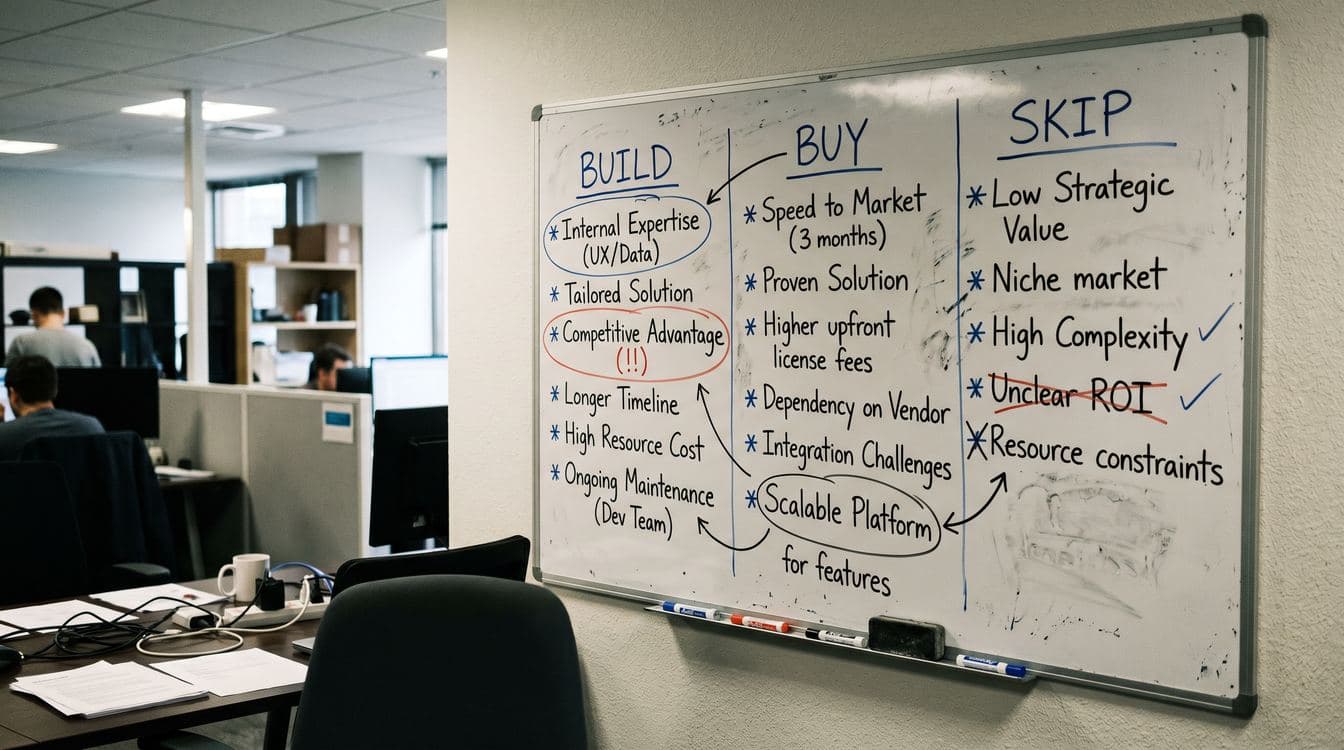 BUILD
* Internal Expertise
(UX/Data)
* Tailored Solution
* Competitive Advantage
(!!)
* Longer Timeline
* High Resource Cost
* Ongoing Maintenance
(Dev Team)
BUY
* Speed to Market
(3 months)
* Proven Solution
* Higher upfront
license fees
* Dependency on Vendor
* Integration Challenges
* Scalable Platform
for features
SKIP
* Low Strategic
Value
* Niche market
* High Complexity ✓
* Unclear ROI ✓
* Resource constraints